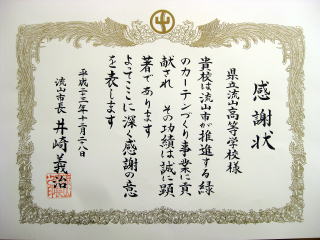 感謝状
県立流山高等学校様
貴校は流山市が推進する緑
のカーテンづくり事業に貢
献され その功績は誠に顕
著であります
よってここに深く感謝の意
を表します
平成二十三年十一月二八日
流山市長 井崎義治